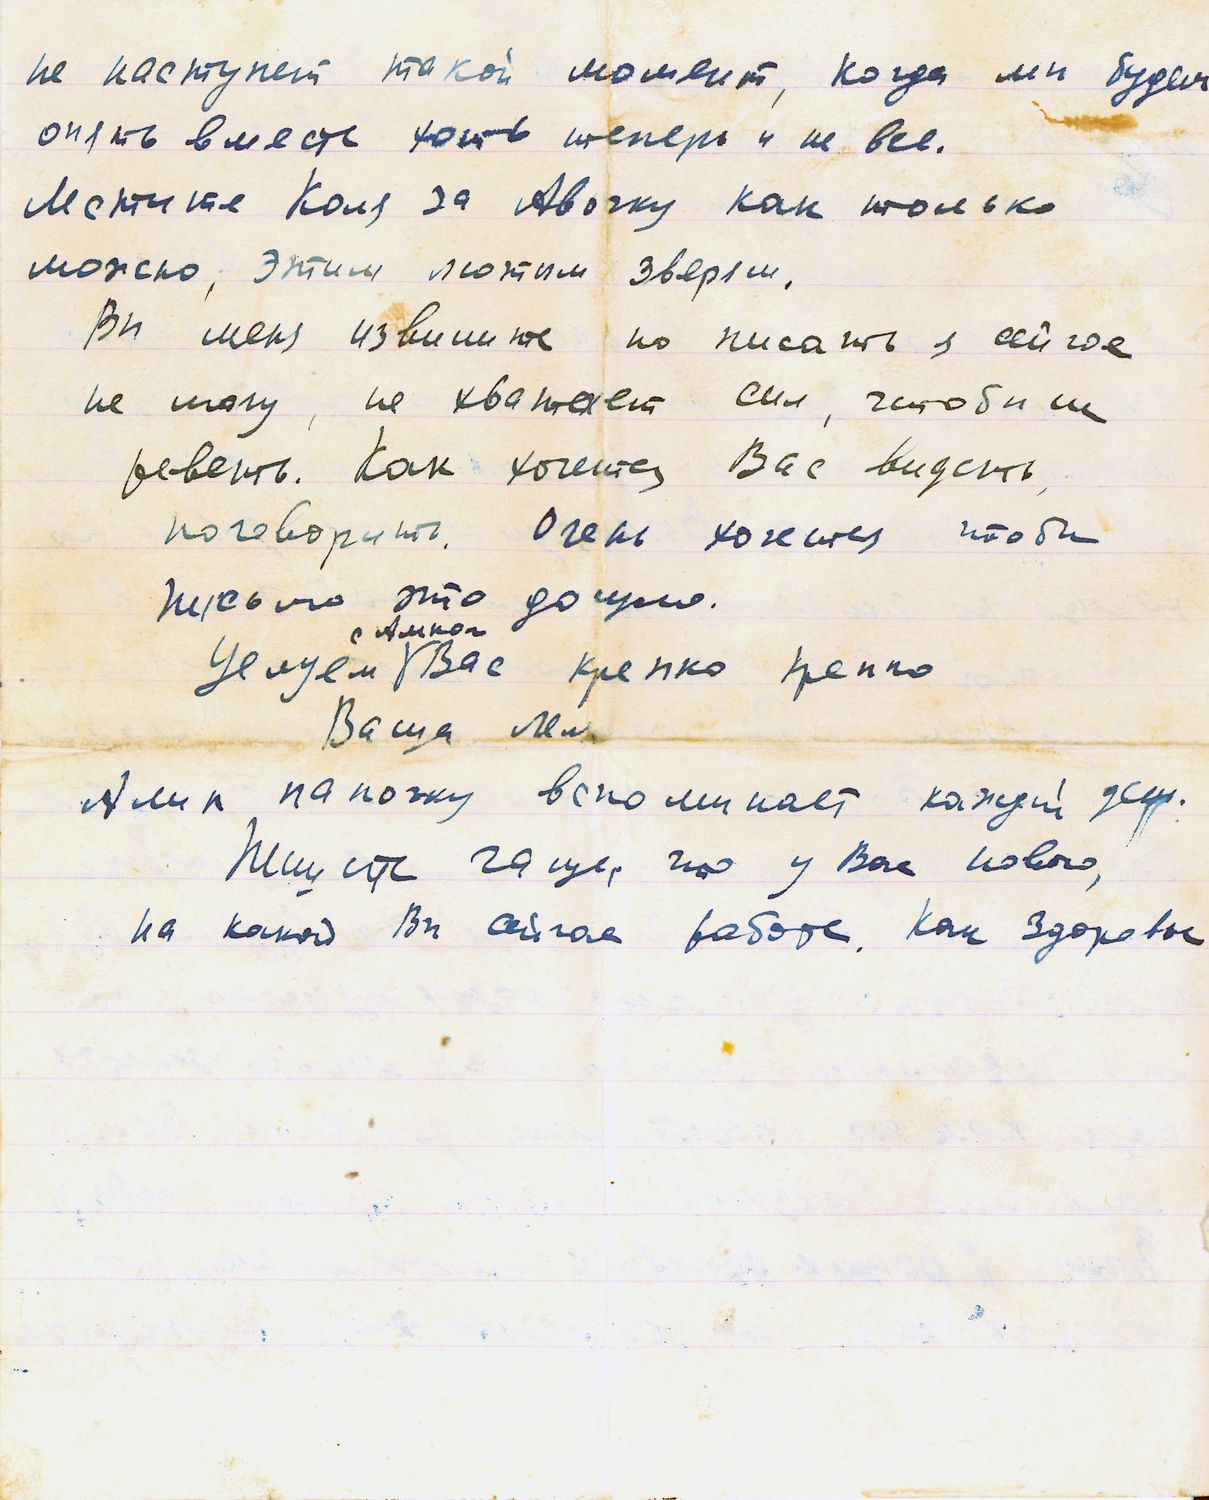 не наступит такой момент, когда мы будем
опять вместе хоть теперь и не все.
Мстите Коля за Авочку как только
можно, этим лютым зверям.
Вы меня извините но писать я сейчас
не могу, не хватает сил, чтобы не
реветь. Как хочется Вас видеть,
поговорить. Очень хочется чтобы
письмо это дошло.
с Аликом
Целуем Вас крепко крепко
Ваша Лел
Алик папочку вспоминает каждый день.
Пишите чаще, что у Вас нового,
на какой Вы сейчас работе. Как здоровье